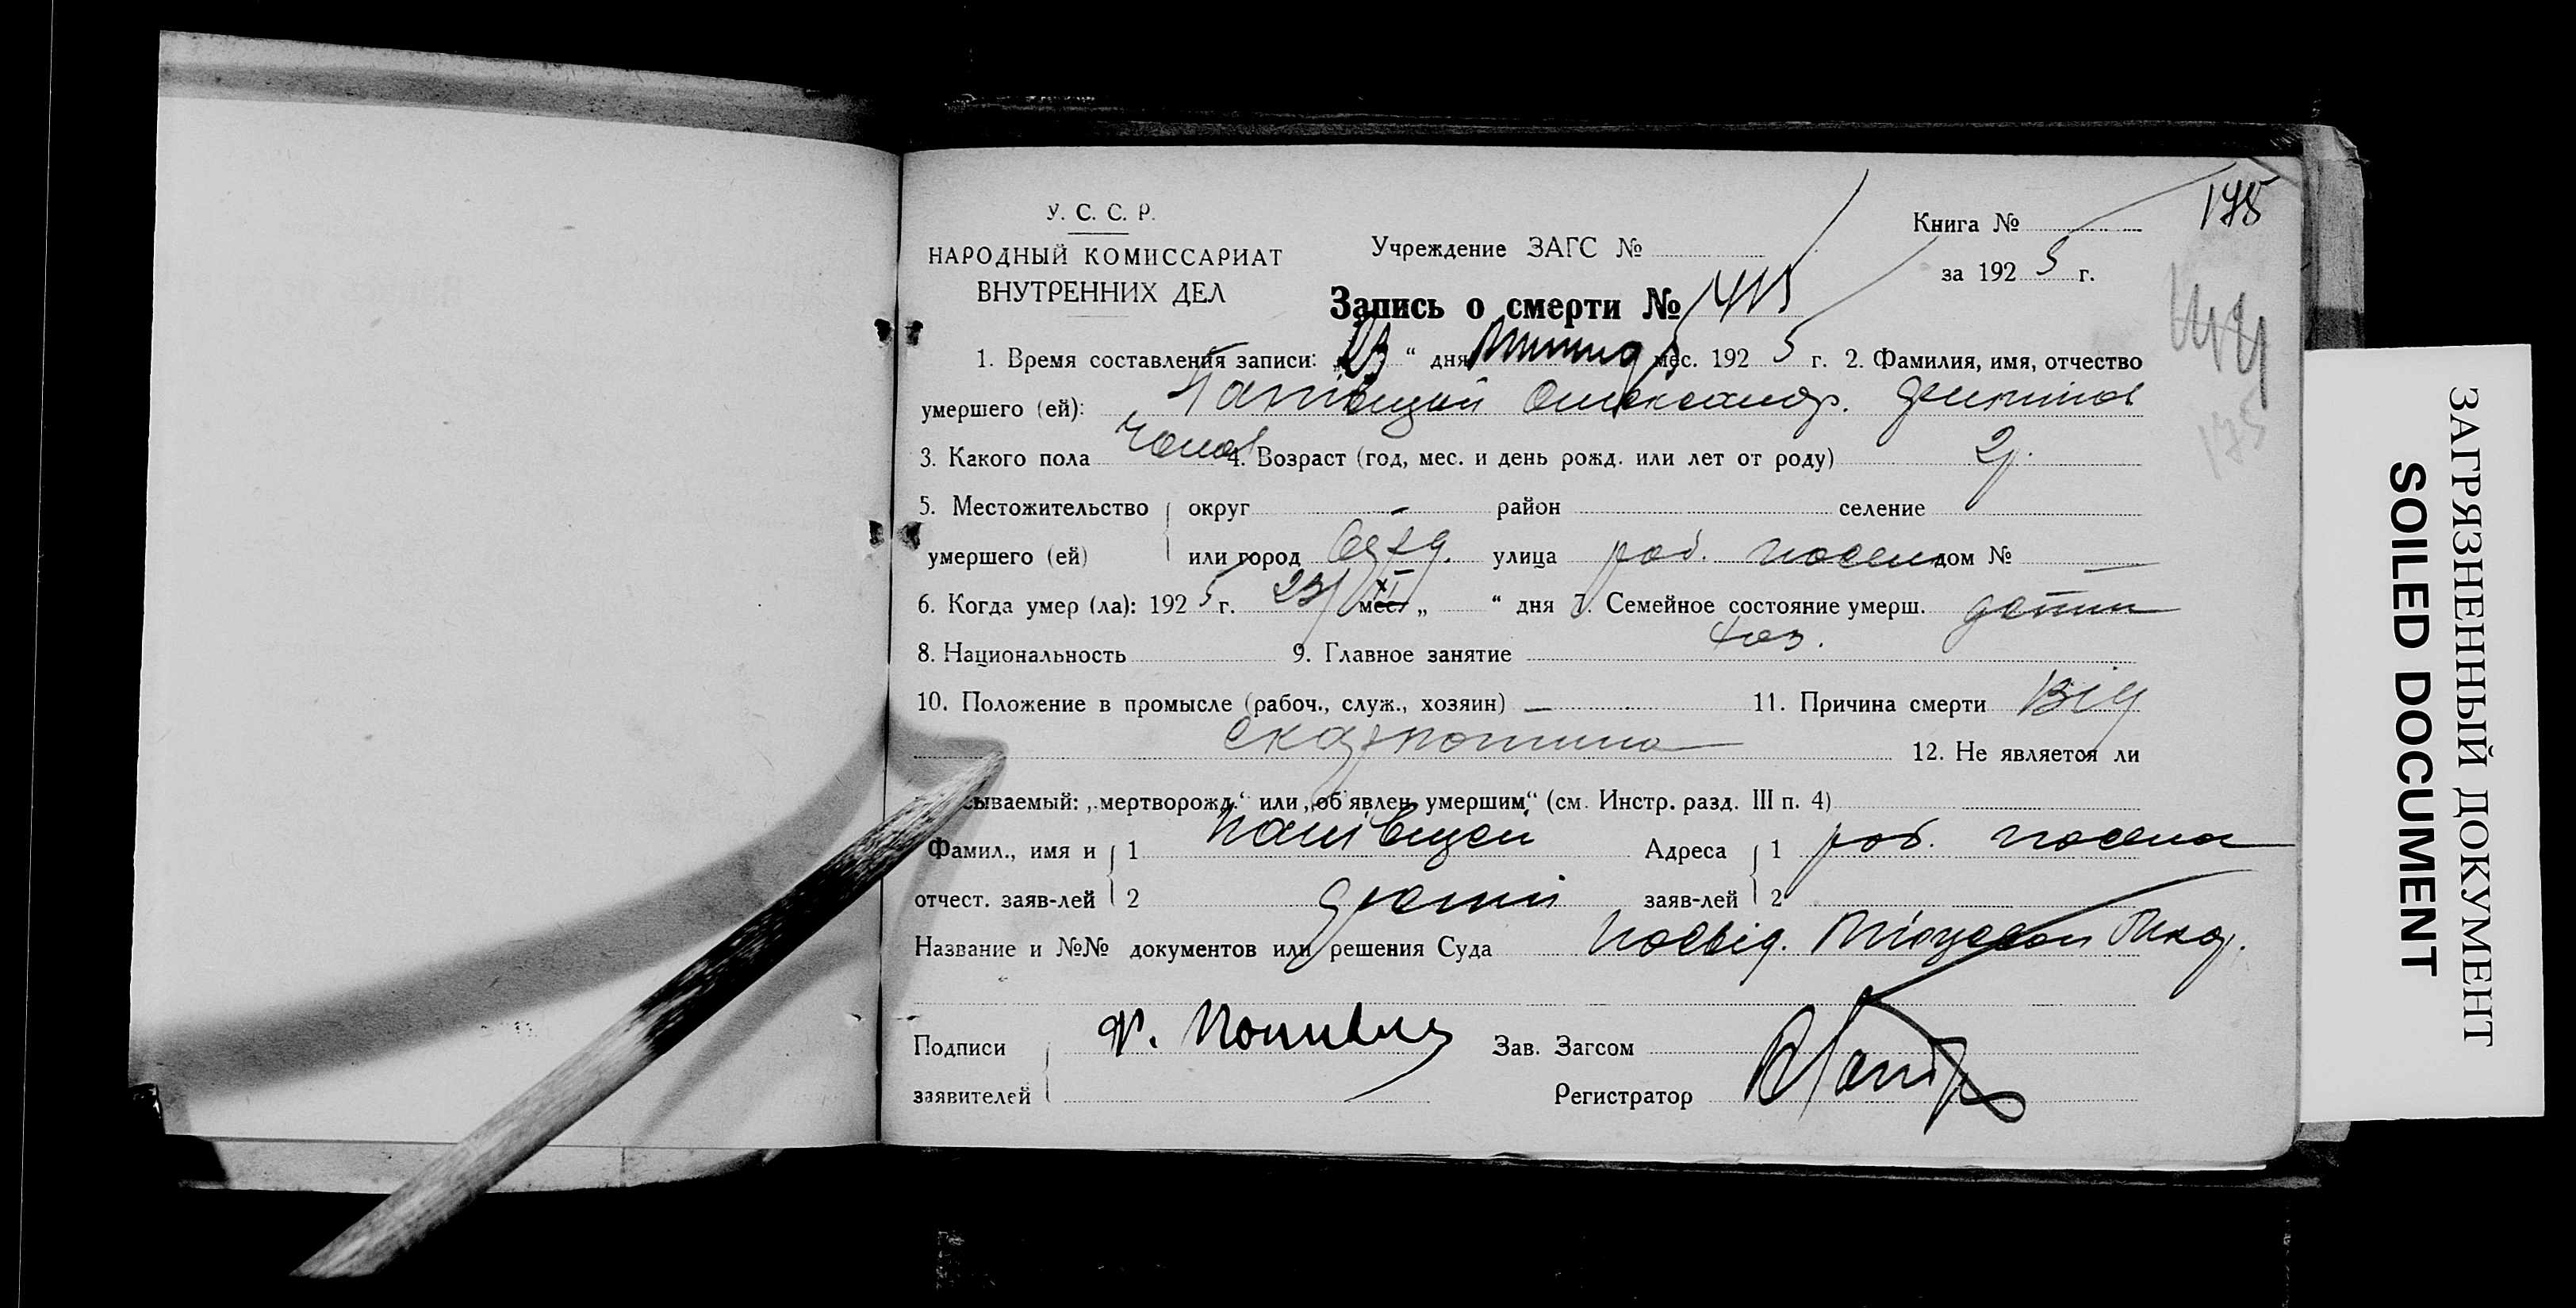 У. С. С. Р.
НАРОДНЫЙ КОМИССАРИАТ
ВНУТРЕННИХ ДЕЛ
Учреждение ЗАГС №
Книга №
175
за 192 5 г.
Запись о смерти № 415
175
1. Время составления записи: „23“ дня мес. 192 5 г. 2. Фамилия, имя, отчество
умершего (ей): Олександр.
3. Какого пола Чолов 4. Возраст (год, мес. и день рожд. или лет от роду) 2 р.
5. Местожительство округ район селение
умершего (ей) или город улица роб. посел дом № —
6. Когда умер (ла): 192 5 г. 23/XI мес. „ “ дня 7. Семейное состояние умерш. детин
8. Национальность 9. Главное занятие
10. Положение в промысле (рабоч., служ., хозяин) — 11. Причина смерти Від
скарлатина 12. Не является ли
сываемый: „мертворожд.“ или „об'явлен умершим“ (см. Инстр. разд. III п. 4)
Фамил., имя и 1 Адреса 1 роб. посела
отчест. заяв-лей 2 заяв-лей 2
Название и №№ документов или решения Суда Посвід.
Подписи Зав. Загсом
заявителей Регистратор
ЗАГРЯЗНЕННЫЙ ДОКУМЕНТ
SOILED DOCUMENT